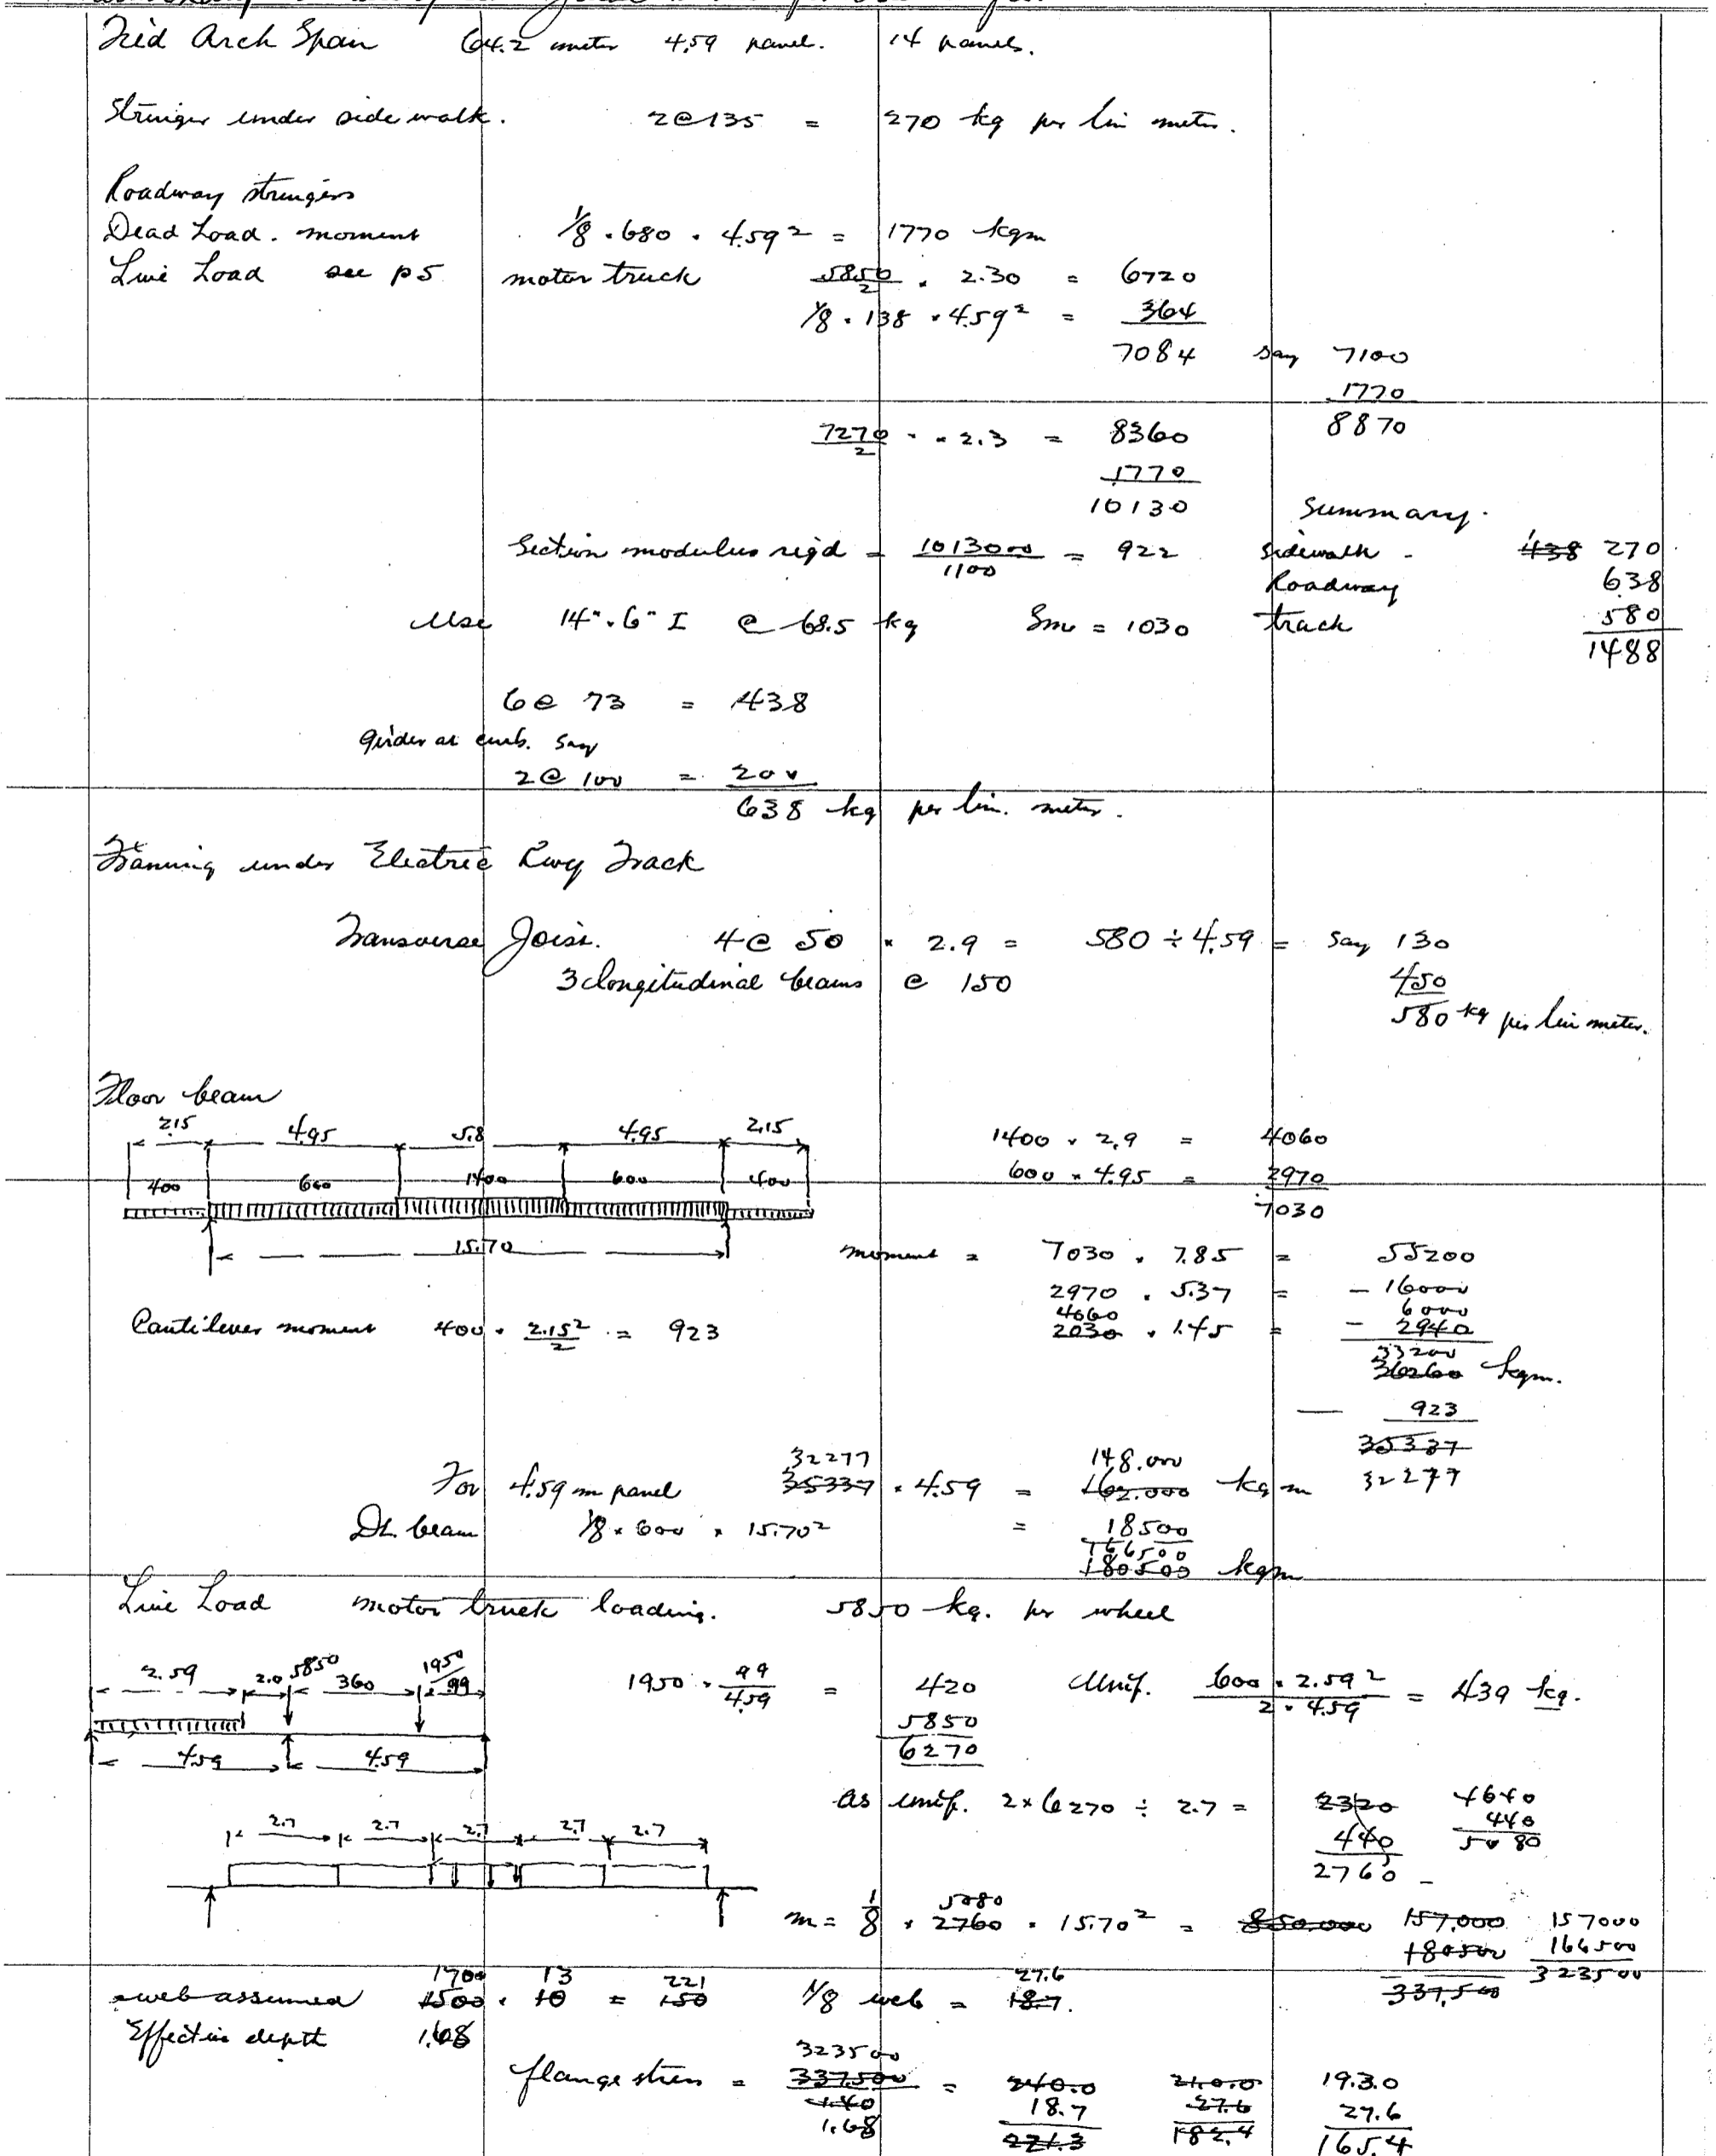 Tied Arch Span 64.2 meter 4.59 panel. 14 panels.
Stringer under side walk. 2@135 = 270 kg per lin meter.
Roadway stringers
Dead Load. moment 1/8 · 680 · 4.59² = 1770 kgm
Live Load see p5 motor truck 5850/2 · 2.30 = 6720
1/8 · 138 · 4.59² = 364
7084 say 7100
1770
8870
7270/2 · · 2.3 = 8360
1770
10130
Section modulus reqd = 1013000/1100 = 922
Use 14" · 6" I @ 68.5 kg Sm = 1030
Summary.
sidewalk - 438 270
Roadway 638
track 580
1488
6@ 73 = 438
girder at curb. say
2@ 100 = 200
638 kg per lin. meter.
Framing under Electric Rwy Track
Transverse Joist. 4@ 50 × 2.9 = 580 ÷ 4.59 = say 130
3 longitudinal beams @ 150 450
580 kg per lin meter.
Floor beam
2.15 4.95 5.8 4.95 2.15
400 600 1400 600 400
15.70
1400 × 2.9 = 4060
600 × 4.95 = 2970
7030
moment = 7030 · 7.85 = 55200
2970 · 5.37 = - 16000
4060 6000
2030 · 1.45 = - 2940
33200
36260 kgm.
Cantilever moment 400 · 2.15²/2 = 923
— 923
35337
32277
32277 148.000
For 4.59 m panel 35337 · 4.59 = 162.000 kgm
DL beam 1/8 × 600 × 15.70² = 18500
166500
180500 kgm
Live Load motor truck loading. 5850 kg. per wheel
2.59 2.0 5850 360 1950 .99
4.59 4.59
1950 · 99/4.59 = 420
5850
6270
Unif. 600 · 2.59²/2 · 4.59 = 439 kg.
As unif. 2 × 6270 ÷ 2.7 = 2320 4640
440 440
2760 5080
2.7 2.7 2.7 2.7 2.7
5080
m = 1/8 · 2760 · 15.70² = 850000 157,000 157000
180500 166500
337,500 323500
1700 13 221 27.6
web assumed 1500 · 10 = 150 1/8 web = 18.7.
Effective depth 1.68
323500
flange stress = 337500 = 240.0 210.0 193.0
1.40 18.7 27.6 27.6
1.68 221.3 182.4 165.4